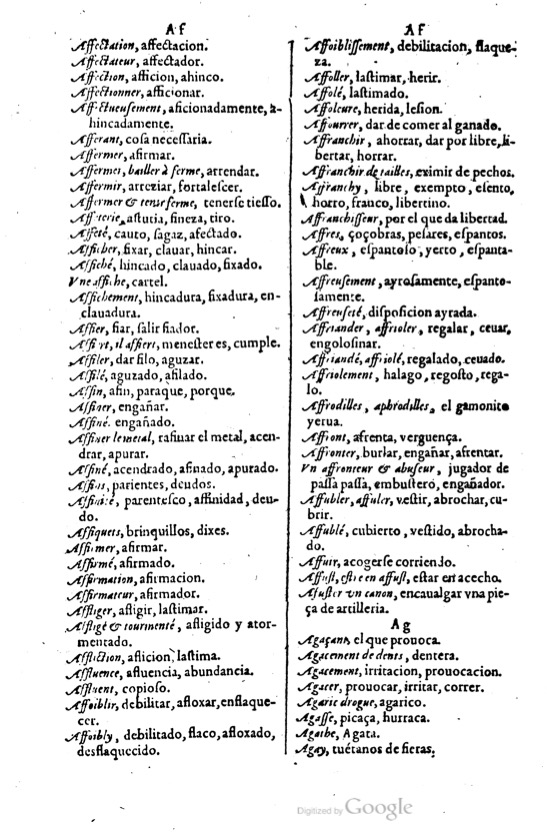 Af
Affectation, affectacion.
Affectateur, affectador.
Affection, afficion, ahinco.
Affectionner, afficionar.
Affectueusement, aficionadamente, a-
hincadamente.
Afferant, coſa neceſſaria.
Affermer, afirmar.
Affermer, bailler à ferme, arrendar.
Affermir, arreziar, fortaleſcer.
Affermer & tenir ferme, tenerſe tieſſo.
aſtutia, fineza, tiro.
Affeté, cauto, ſagaz, afectado.
Afficher, fixar, clauar, hincar.
Affiché, hincado, clauado, fixado.
Vne affiche, cartel.
Affichement, hincadura, fixadura, en-
clauadura.
Affier, fiar, ſalir fiador.
il affiert, meneſter es, cumple.
Affiler, dar filo, aguzar.
Affilé, aguzado, afilado.
Affin, afin, paraque, porque.
Affiner, engañar.
Affiné. engañado.
Affiner le metal, rafinar el metal, acen-
drar, apurar.
Affiné, acendrado, afinado, apurado.
Affins, parientes, deudos.
Affinité, parenteſco, affinidad, deu-
do.
Affiquets, brinquillos, dixes.
Affirmer, afirmar.
Affirmé, afirmado.
Affirmation, afirmacion.
Affirmateur, afirmador.
Affliger, afligir, laſtimar.
Affligé & tourmenté, afligido y ator-
mentado.
Affliction, aflicion, laſtima.
Affluence, afluencia, abundancia.
Affluent, copioſo.
Affoiblir, debilitar, afloxar, enflaque-
cer.
Affoibly, debilitado, flaco, afloxado,
desflaquecido.
Af
Affoibliſſement, debilitacion, flaque-
za.
Affoller, laſtimar, herir.
Affolé, laſtimado.
Affoleure, herida, leſion.
Affourrer, dar de comer al ganado.
Affranchir, ahorrar, dar por libre, li-
bertar, horrar.
Affranchir de tailles, eximir de pechos.
Affranchy, libre, exempto, eſento,
horro, franco, libertino.
Affranchiſſeur, por el que da libertad.
Affres, çoçobras, peſares, eſpantos.
Affreux, eſpantoſo, yerto, eſpanta-
ble.
Affreuſement, ayroſamente, eſpanto-
ſamente.
Affreuſeté, diſpoſicion ayrada.
Affriander, affrioler, regalar, ceuar,
engoloſinar.
Affriandé, affriolé, regalado, ceuado.
Affriolement, halago, regoſto, rega-
lo.
Affrodilles, aphrodilles, el gamonito
yerua.
Affront, afrenta, verguença.
Affronter, burlar, engañar, afrentar.
Vn affronteur & abuſeur, jugador de
paſſa paſſa, embuſtero, engañador.
Affubler, affuler, veſtir, abrochar, cu-
brir.
Affublé, cubierto, veſtido, abrocha-
do.
Affuir, acogerſe corriendo.
Affuſt, eſtre en affuſt, eſtar en acecho.
Afuſter vn canon, encaualgar vna pie-
ça de artilleria.
Ag
Agaçant, el que prouoca.
Agacement de dents, dentera.
Agacement, irritacion, prouocacion.
Agacer, prouocar, irritar, correr.
Agaric drogue, agarico.
Agaſſe, picaça, hurraca.
Agathe, Agata.
Agay, tuétanos de fieras.
Digitized by Google